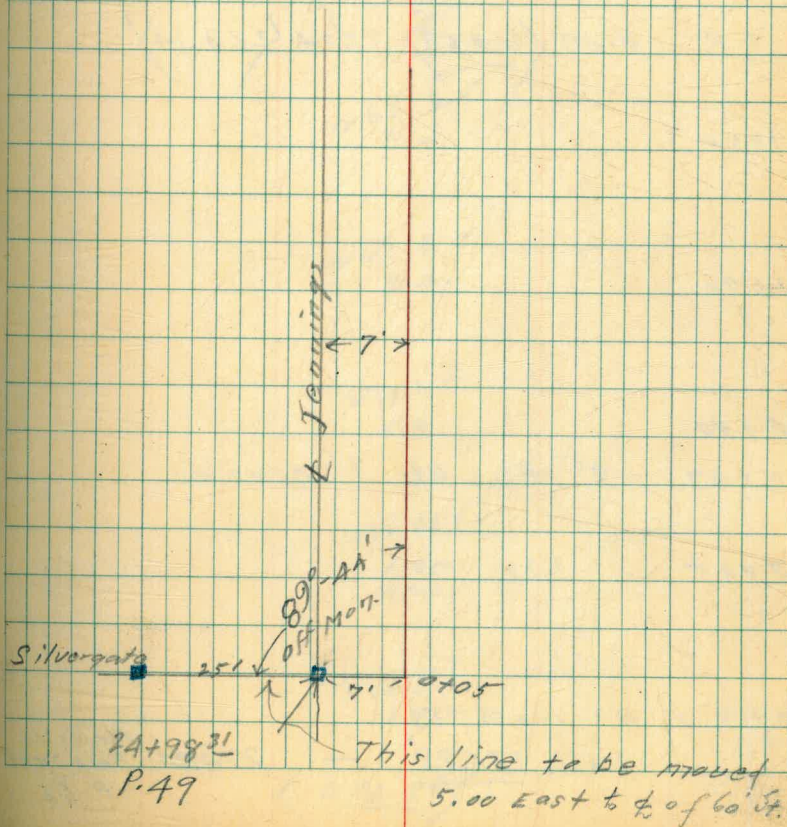 ℄ Jennings
← 7' →
89°-44'
off Mon.
Silvergate
25'
7'
0+05
24+98 31
P.49
This line to be moved
5.00 East to ℄ of 60' St.